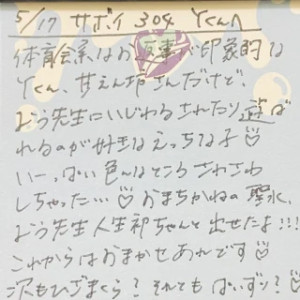 5/17 サボイ 304 Yくんへ
体育会系なお返事で印象的な
Yくん、甘えん坊さんだけど、
よう先生にいじわるされたり遊ば
れるのが好きなえっちな子♡
いーっぱい色んなところさわさわ
しちゃった…♡ おまちかねの聖水、
よう先生人生初ちゃんと出せたよ!!!
これからはおまかせあれです♡
次もひざまくら? それともぱいずり?♡